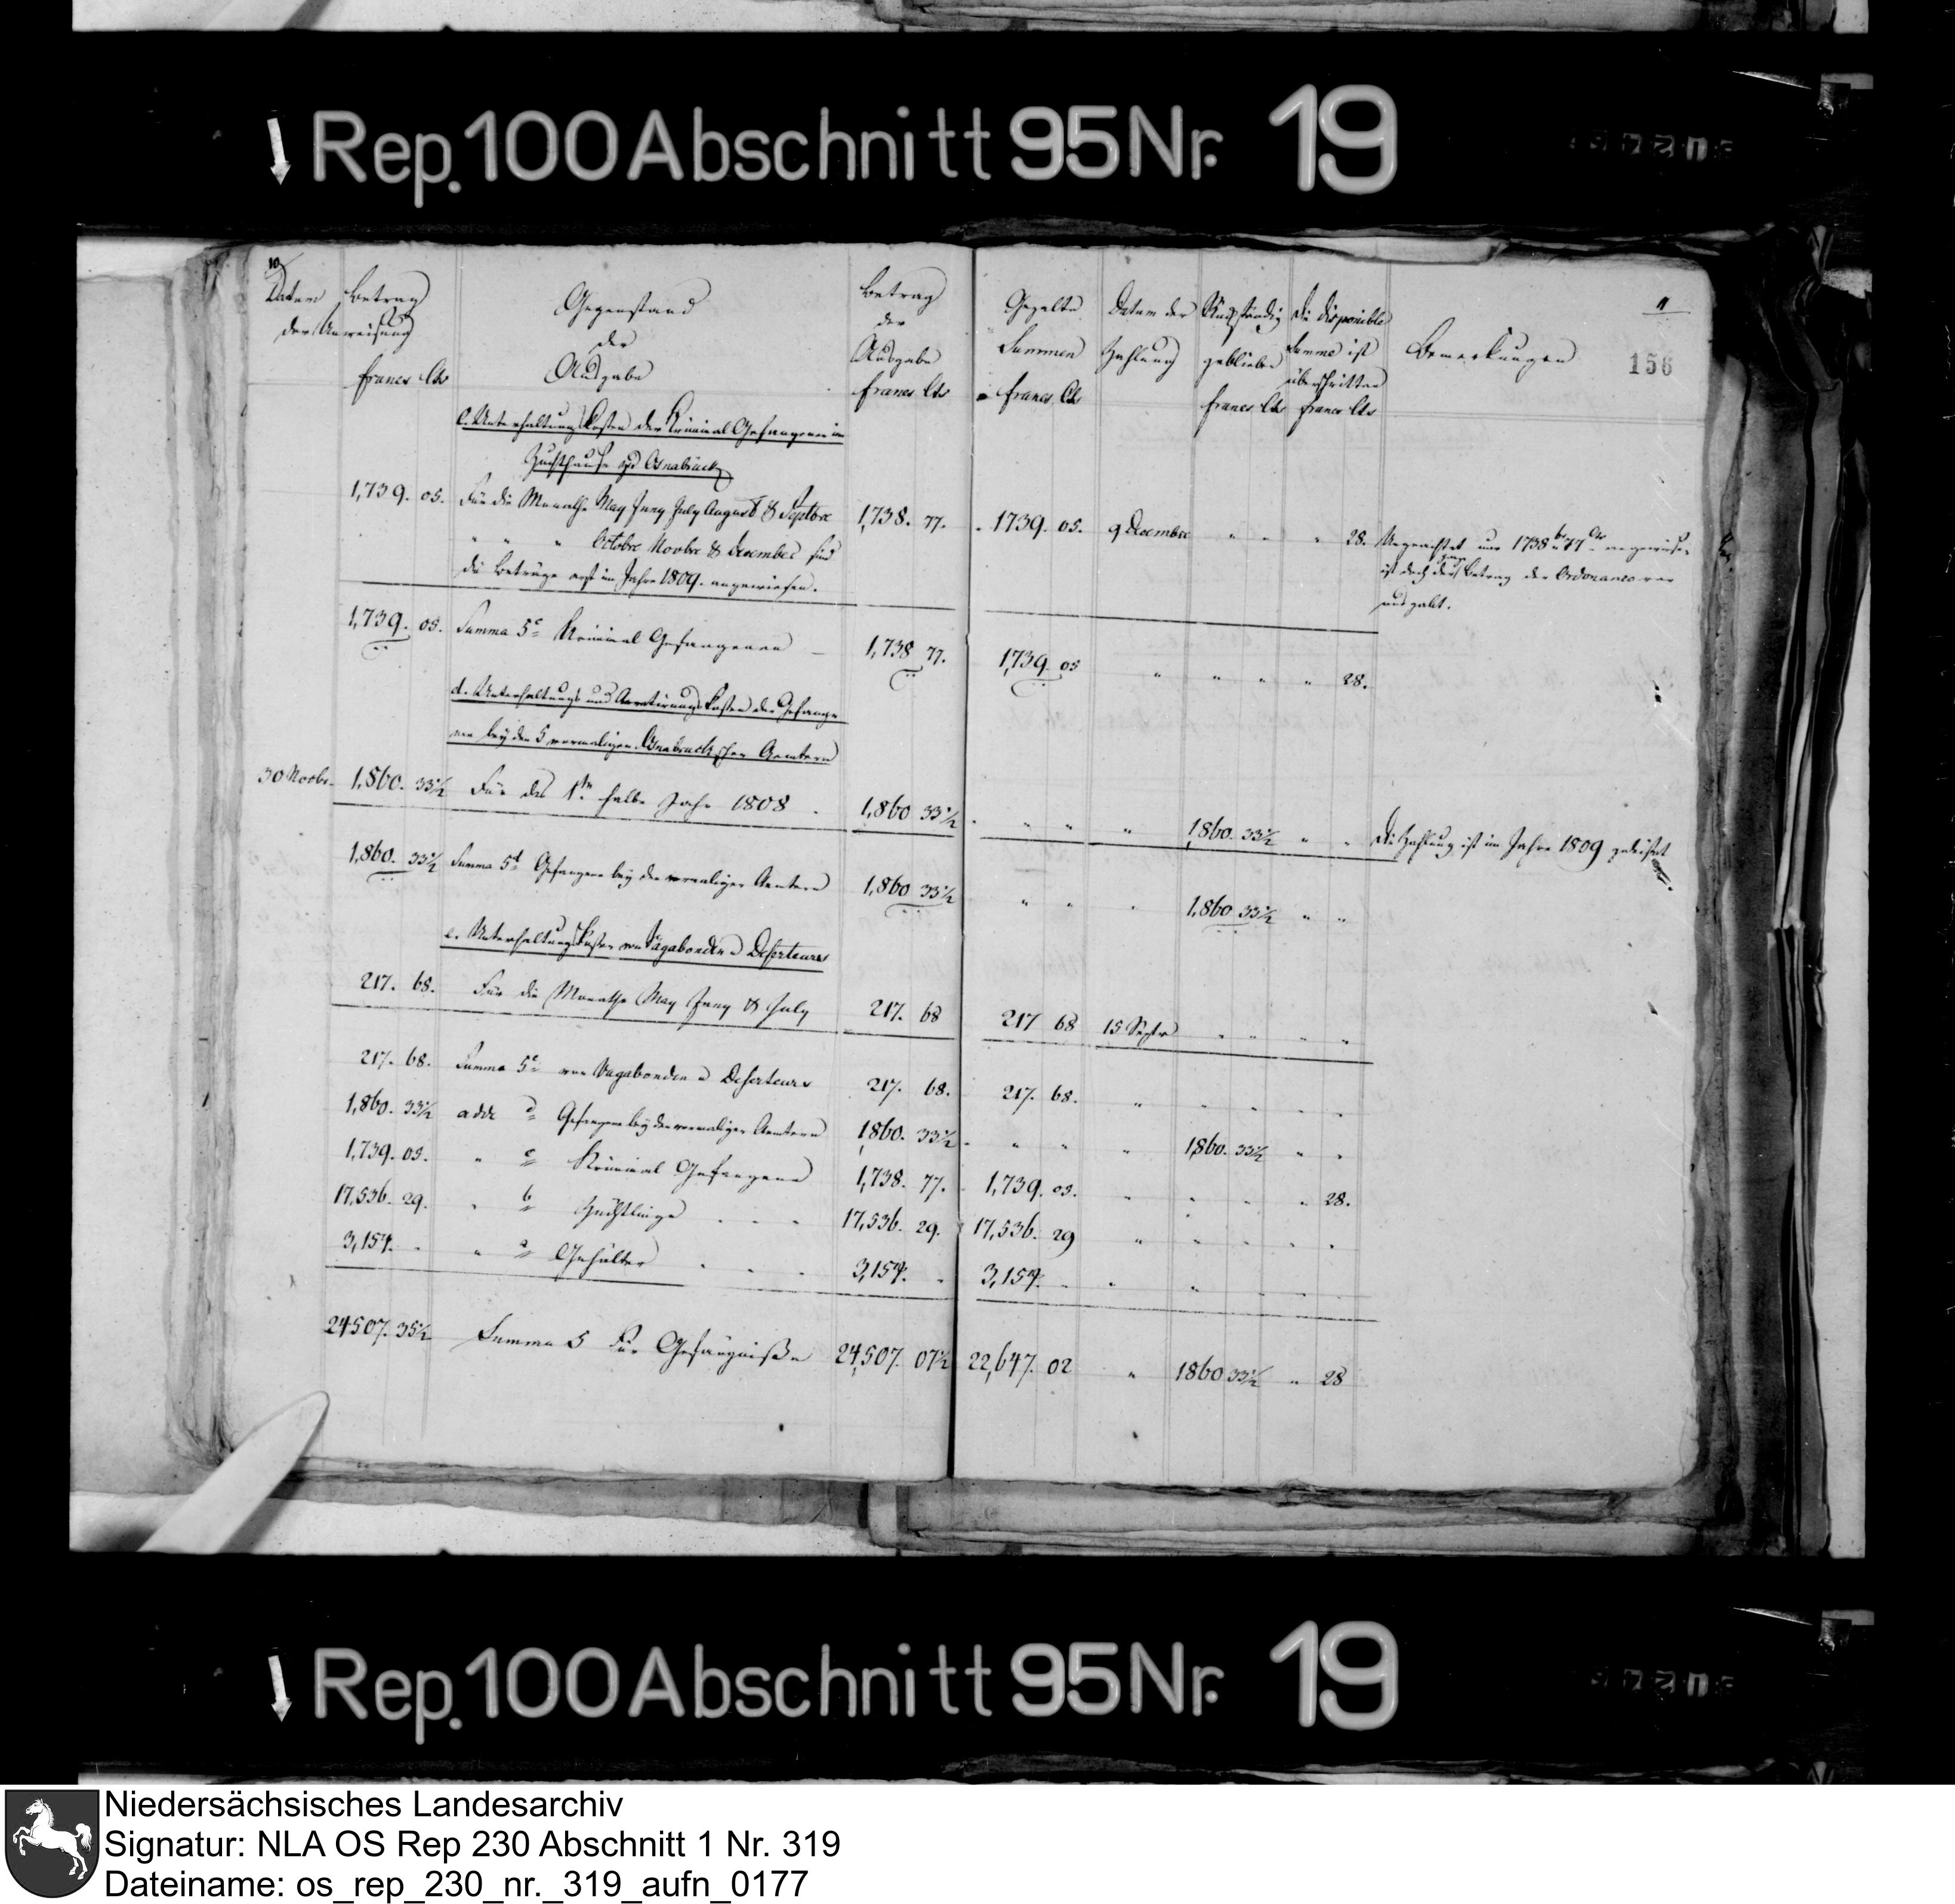 Rep. 100 Abschnitt 95 Nr. 19
10
11
156
Datum Betrag
der Anweisung
francs Cts
Gegenstand
der
Ausgabe
Betrag
der
Ausgabe
francs Cts
Gezalte
Summen
francs Cts
Datum der
Zahlung
Rückständig
geblieben
francs Cts
Die disponible
Summe ist
überschritten
francs Cts
Bemerkungen
c. Unterhaltungs Kosten der Kriminal Gefangenen im
Zuchthause zu Osnabrück
1,739. 05. Für die Monathe May Juny July August & Septbre 1,738. 77. 1739. 05. 9 Decembre " " " 28. Ungeachtet nur 1738 fr 77 Cts angewiesen
" " " Octobre Novbre & December sind ist doch der Betrag der Ordonance
die Beträge erst im Jahre 1809. angewiesen. ausgezalt.
1,739. 05. Summa 5 c Kriminal Gefangenen 1,738 77. 1,739. 05 " " " " 28.
d. Unterhaltungs und Kosten der Gefange
nen bey den 5 vormaligen Osnabrückschen Aemtern
30 Novbr. 1,860. 33½ Für das 1te halbe Jahr 1808 1,860 33½ " " " 1,860. 33½ " " Die Zahlung ist im Jahre 1809 geleistet
1,860. 33½ Summa 5 d Gefangene bey den vormaligen Aemtern 1,860 33½ " " " 1,860 33½ " "
e. Unterhaltungs Kosten von Vagabonden u Deserteurs
217. 68. Für die Monathe May Juny & July 217. 68 217 68 15 Septr " " " "
217. 68. Summa 5 e von Vagabonden u Deserteurs 217. 68. 217. 68. " " " " "
1,860. 33½ adde d Gefangene bey den vormaligen Aemtern 1,860. 33½ " " " 1,860. 33½ " "
1,739. 05. " c Kriminal Gefangene 1,738. 77. 1,739. 05. " " " " 28.
17,536. 29. " b Züchtlinge 17,536. 29. 17,536. 29 " " " " "
3,154. " " a Gehälter 3,154. " 3,154. " " " " " "
24507. 35½ Summa 5 für Gefängniße 24,507. 07½ 22,647. 02 " 1860 33½ " 28
Rep. 100 Abschnitt 95 Nr. 19
Niedersächsisches Landesarchiv
Signatur: NLA OS Rep 230 Abschnitt 1 Nr. 319
Dateiname: os_rep_230_nr._319_aufn_0177